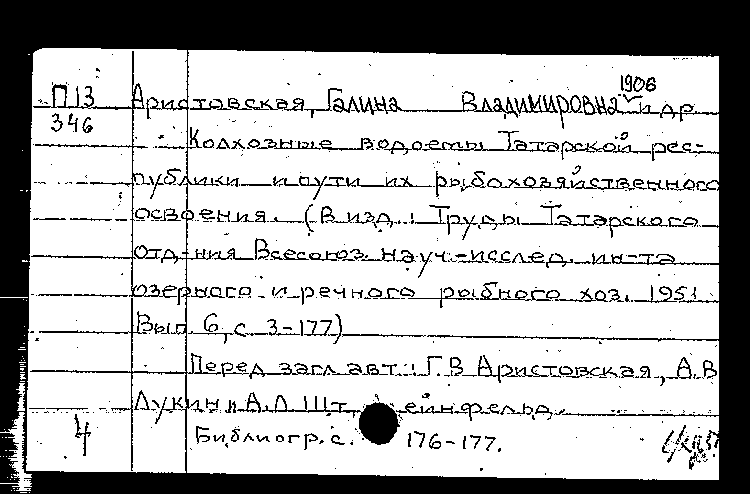 1906
П13 Аристовская, Галина Владимировна и др
346
Колхозные водоемы Татарской рес-
публики и пути их рыбохозяйственного
освоения. (В изд.: Труды Татарского
отд-ния Всесоюз. науч.-исслед. ин-та
озерного и речного рыбного хоз. 1951
Вып. 6, с. 3-177)
Перед загл авт.: Г.В Аристовская, А.В
Лукин и А.Л Шт ейнфельд.
4 Библиогр. с. 176-177.